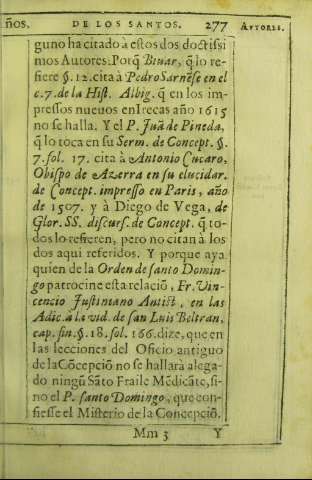 ños. DE LOS SANTOS. 277 AVTORES.
guno ha citado à estos dos doctissi
mos Autores. Porq̃ Biuar, q̃ lo re-
fiere §. 12. cita à Pedro Sarnése en el
c. 7. de la Hist. Albig. q̃ en los im-
pressos nueuos en Trecas año 1615
no se halla. Y el P. Juã de Pineda,
q̃ lo toca en su Serm. de Concept. §.
7. fol. 17. cita à Antonio Cucaro,
Obispo de Azerra en su elucidar.
de Concept. impresso en Paris, año
de 1507. y à Diego de Vega, de
Glor. SS. discurs. de Concept. q̃ to-
dos lo refieren, pero no citan à los
dos aqui referidos. Y porque aya
quien de la Orden de santo Domin-
go patrocine esta relaciõ, Fr. Vin-
cencio Justiniano Antist, en las
Adic. à la vid. de san Luis Beltran,
cap. fin. §. 18. fol. 166. dize, que en
las lecciones del Oficio antiguo
de la Cõcepciõ no se hallarà alega-
do ningũ Sãto Fraile Mẽdicãte, si-
no el P. santo Domingo, que con-
fiesse el Misterio de la Concepciõ.
Mm 3 Y